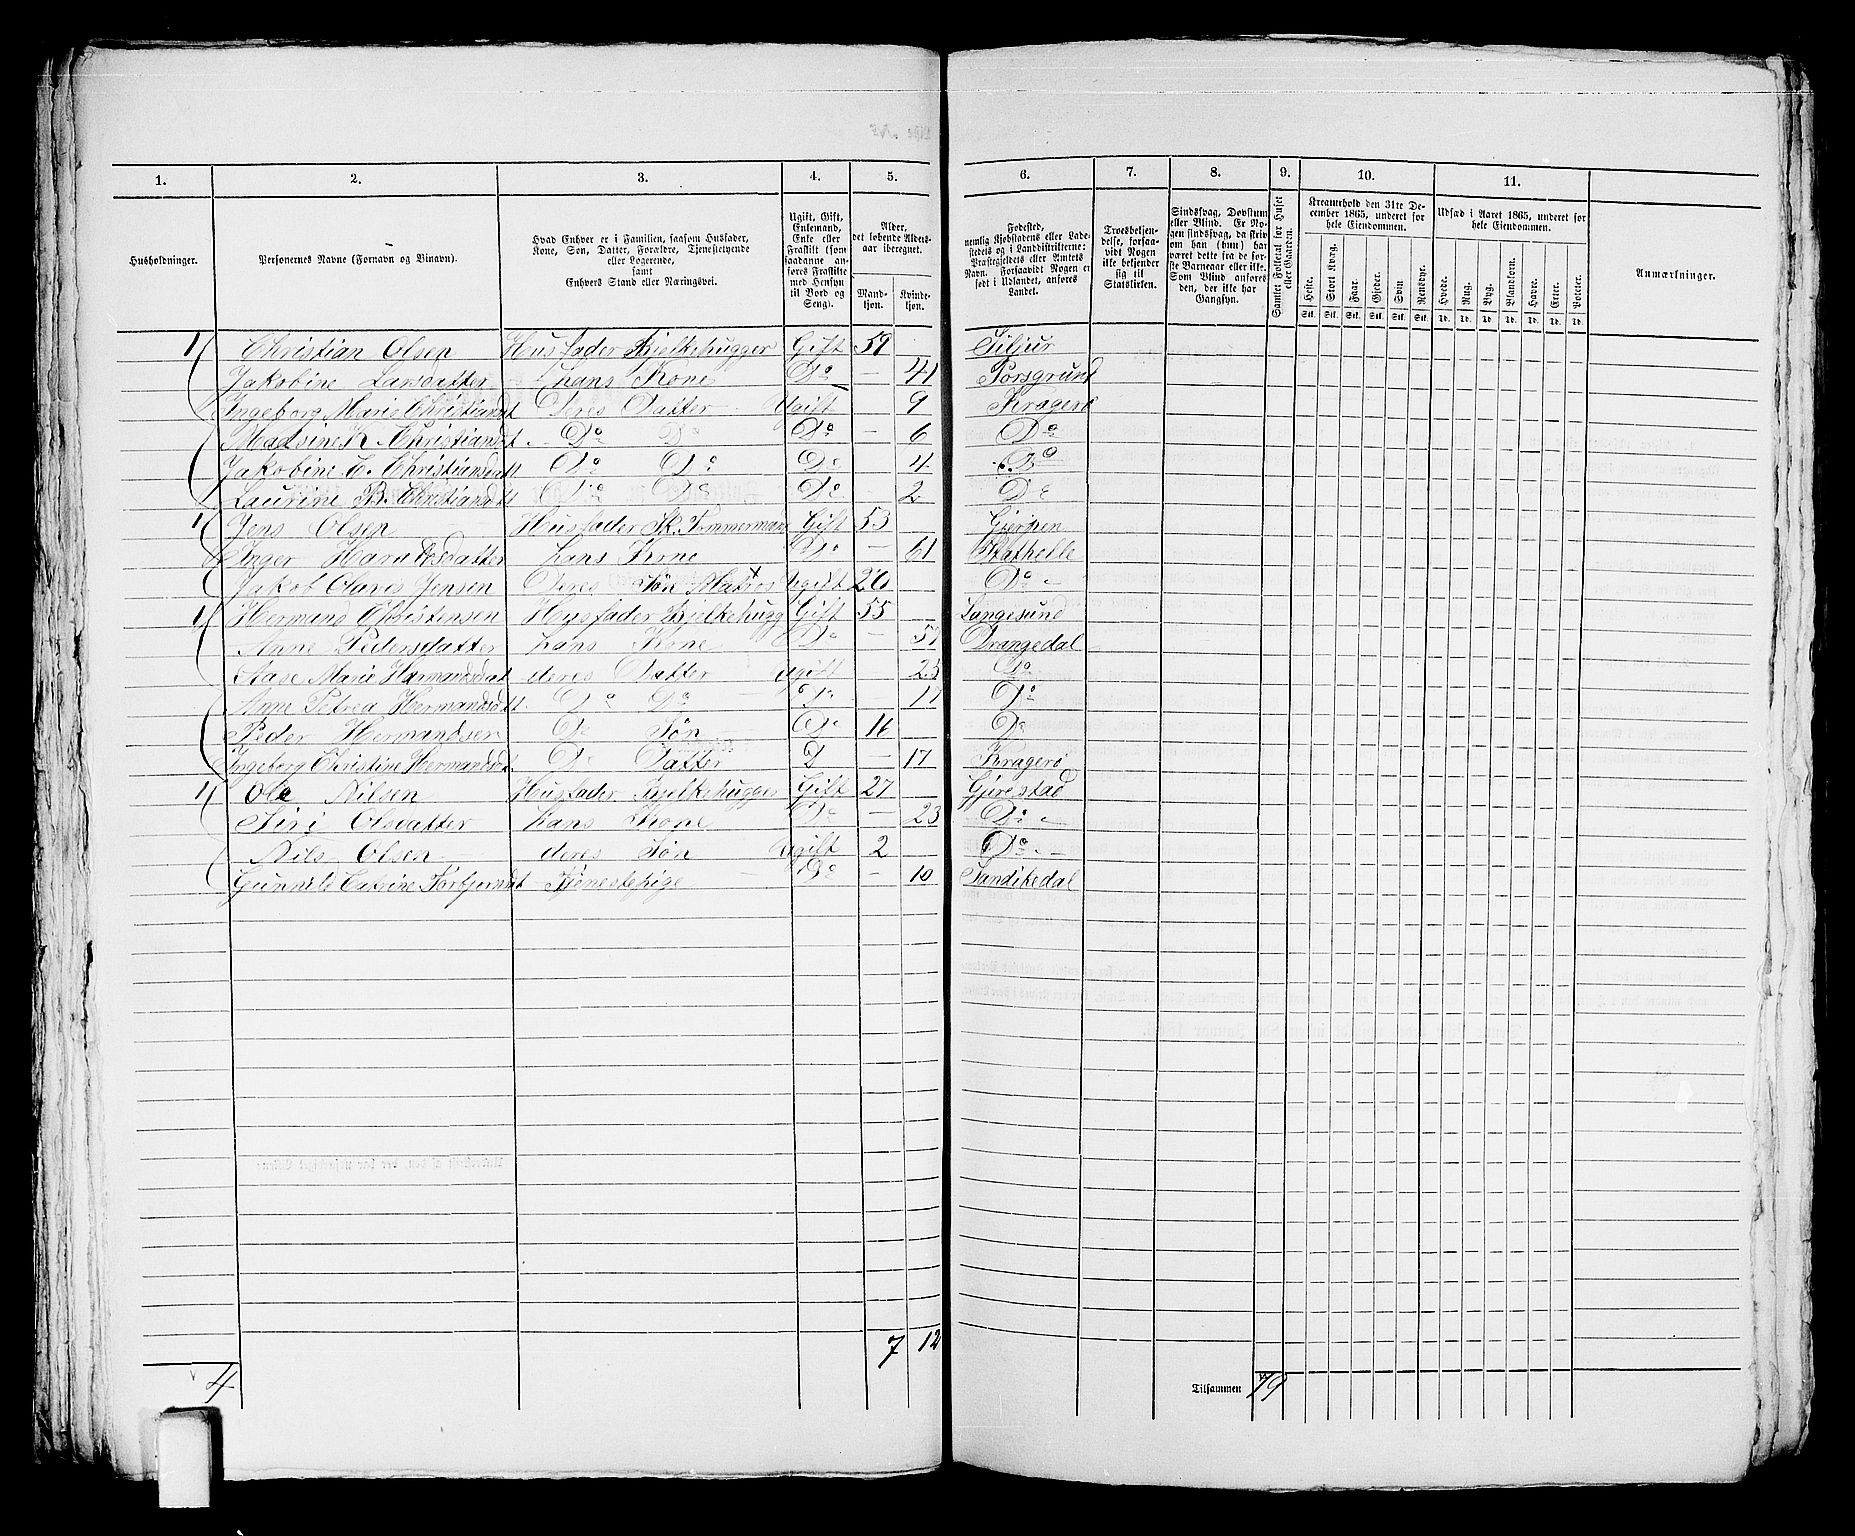 1. 2. 3. 4. 5. 6. 7. 8. 9. 10. 11.
Husholdninger.
Personernes Navne (Fornavn og Binavn).
Hvad Enhver er i Familien, saasom Husfader,
Kone, Søn, Datter, Forældre, Tjenestetyende
eller Logerende,
samt
Enhvers Stand eller Næringsvei.
Ugift, Gift,
Enkemand,
Enke eller
Fraskilt (som
saadanne an-
føres Fraskilte
med Hensyn
til Bord og
Seng).
Alder,
det løbende Alders-
aar iberegnet.
Mand-
kjøn.
Kvinde-
kjøn.
Fødested,
nemlig Kjøbstadens eller Lade-
stedets og i Landdistrikterne:
Præstegjeldets eller Amtets
Navn. Forsaavidt Nogen er
født i Udlandet, anføres
Landet.
Troesbekjen-
delse, forsaa-
vidt Nogen
ikke bekjender
sig til
Statskirken.
Sindssvag, Døvstum
eller Blind. Er No-
gen sindssvag, da skriv
om han (hun) har
været dette fra de før-
ste Barneaar eller ikke.
Som Blind anføres
den, der ikke har
Gangsyn.
Samlet Folketal for Huset
eller Gaarden.
Kreaturhold den 31te De-
cember 1865, underet for
hele Eiendommen.
Heste. Stort Kvæg. Faar. Gjeder. Svin. Rensdyr.
Stk. Stk. Stk. Stk. Stk. Stk.
Udsæd i Aaret 1865, underet for
hele Eiendommen.
Hvede. Rug. Byg. Blandkorn. Havre. Erter. Poteter.
Td. Td. Td. Td. Td. Td. Td.
Anmærkninger.
1 Christian Olsen Husfader Bjelkehugger Gift 59 Siljur
Jakobine Larsdatter hans Kone Do — 41 Porsgrund
Ingeborg Marie Christiansdt Deres Datter Ugift — 9 Kragerø
Madsine K Christiansdt. Do Do Do — 6 Do
Jakobine C. Christiansdatt Do Do Do — 4 Do
Laurine B. Christiansdt Do Do Do 2 Do
1 Jens Olsen Husfader Sk. Tømmermand Gift 53 Gjerpen
Inger Haraldsdatter hans Kone Do — 61 Stathelle
Jakob Claves Jensen Deres Søn Matros Ugift 20 Do
1 Hermand Christensen Husfader Bjelkehugg Gift 55 Langesund
Anne Pedersdatter hans Kone Do — 51 Drangedal
Aase Marie Hermandsdat deres Datter Ugift — 23 Do
Anne Petrea Hermandsdt. Do Do Do — 17 Do
Peder Hermandsen Do Søn Do 16 Do
Ingeborg Christine Hermandsdt. Do Datter D — 17 Kragerø
1 Ole Nilsen Husfader Bjelkehugger Gift 27 Gjerestad
Siri Olsdatter hans Kone Do — 23 Do
Nils Olsen deres Søn Ugift 2 Do
Gunnild Catrine Torbjørnsdt Tjenestepige Do — 10 Sandikedal
7 12
4
Tilsammen 19